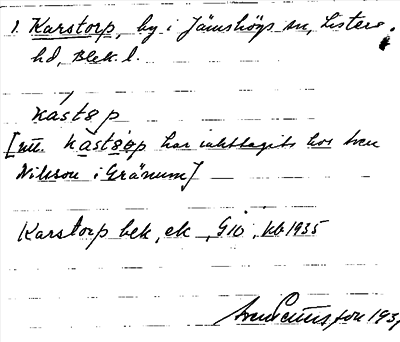 1. Karstorp, by i Jämshögs sn, Listers
hd, Blek. l.
kástøp
[utt. kăstøp har iakttagits hos Sven
Nilsson i Gränum]
Karstorp bek, ek, GIÖ, kb 1935
Sven Benson 193